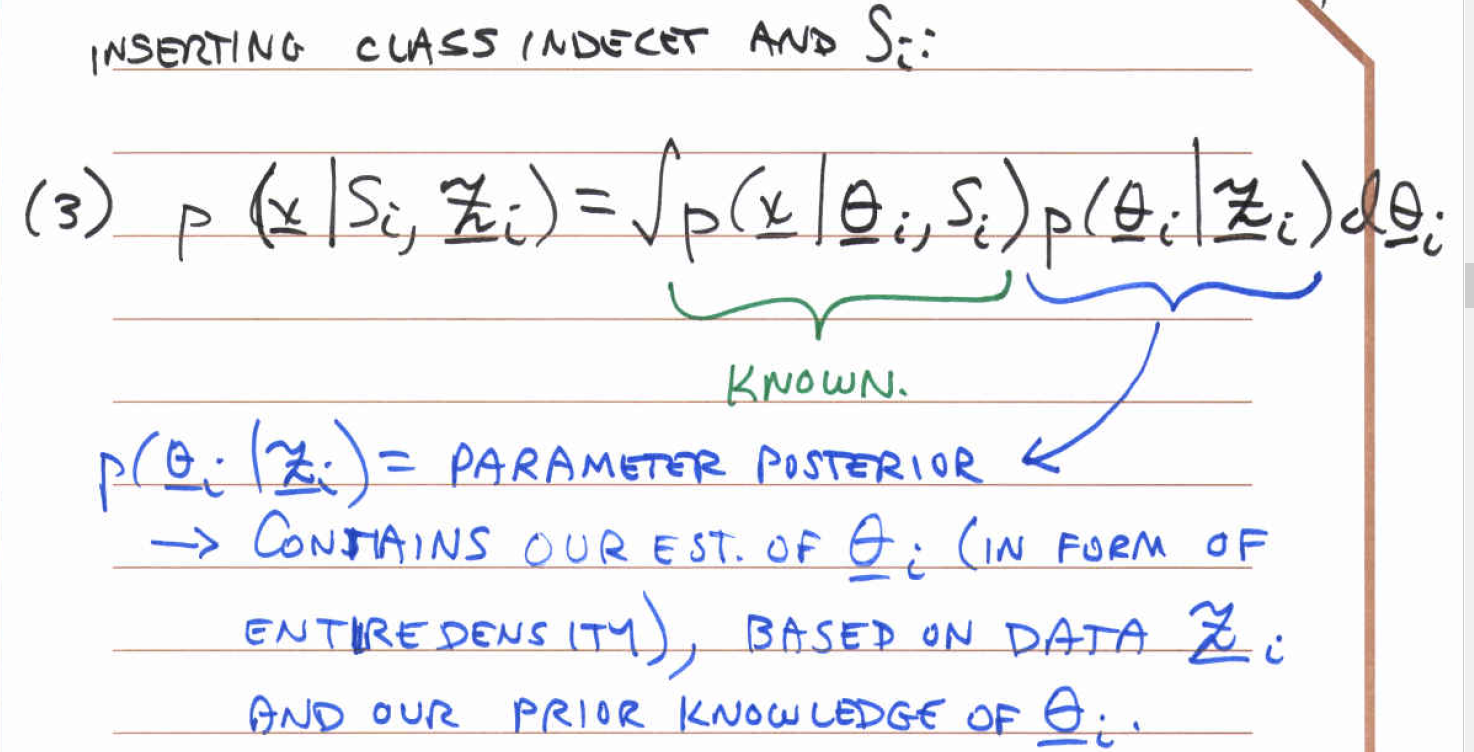 INSERTING CLASS INDECET AND Sᵢ:
(3) p(x̲|Sᵢ, z̲̃ᵢ) = ∫p(x̲|θ̲ᵢ, Sᵢ)p(θ̲ᵢ|z̲̃ᵢ)dθ̲ᵢ
KNOWN.
p(θ̲ᵢ|z̲̃ᵢ) = PARAMETER POSTERIOR ←
→ CONTAINS OUR EST. OF θ̲ᵢ (IN FORM OF
ENTIRE DENSITY), BASED ON DATA z̲̃ᵢ
AND OUR PRIOR KNOWLEDGE OF θ̲ᵢ.